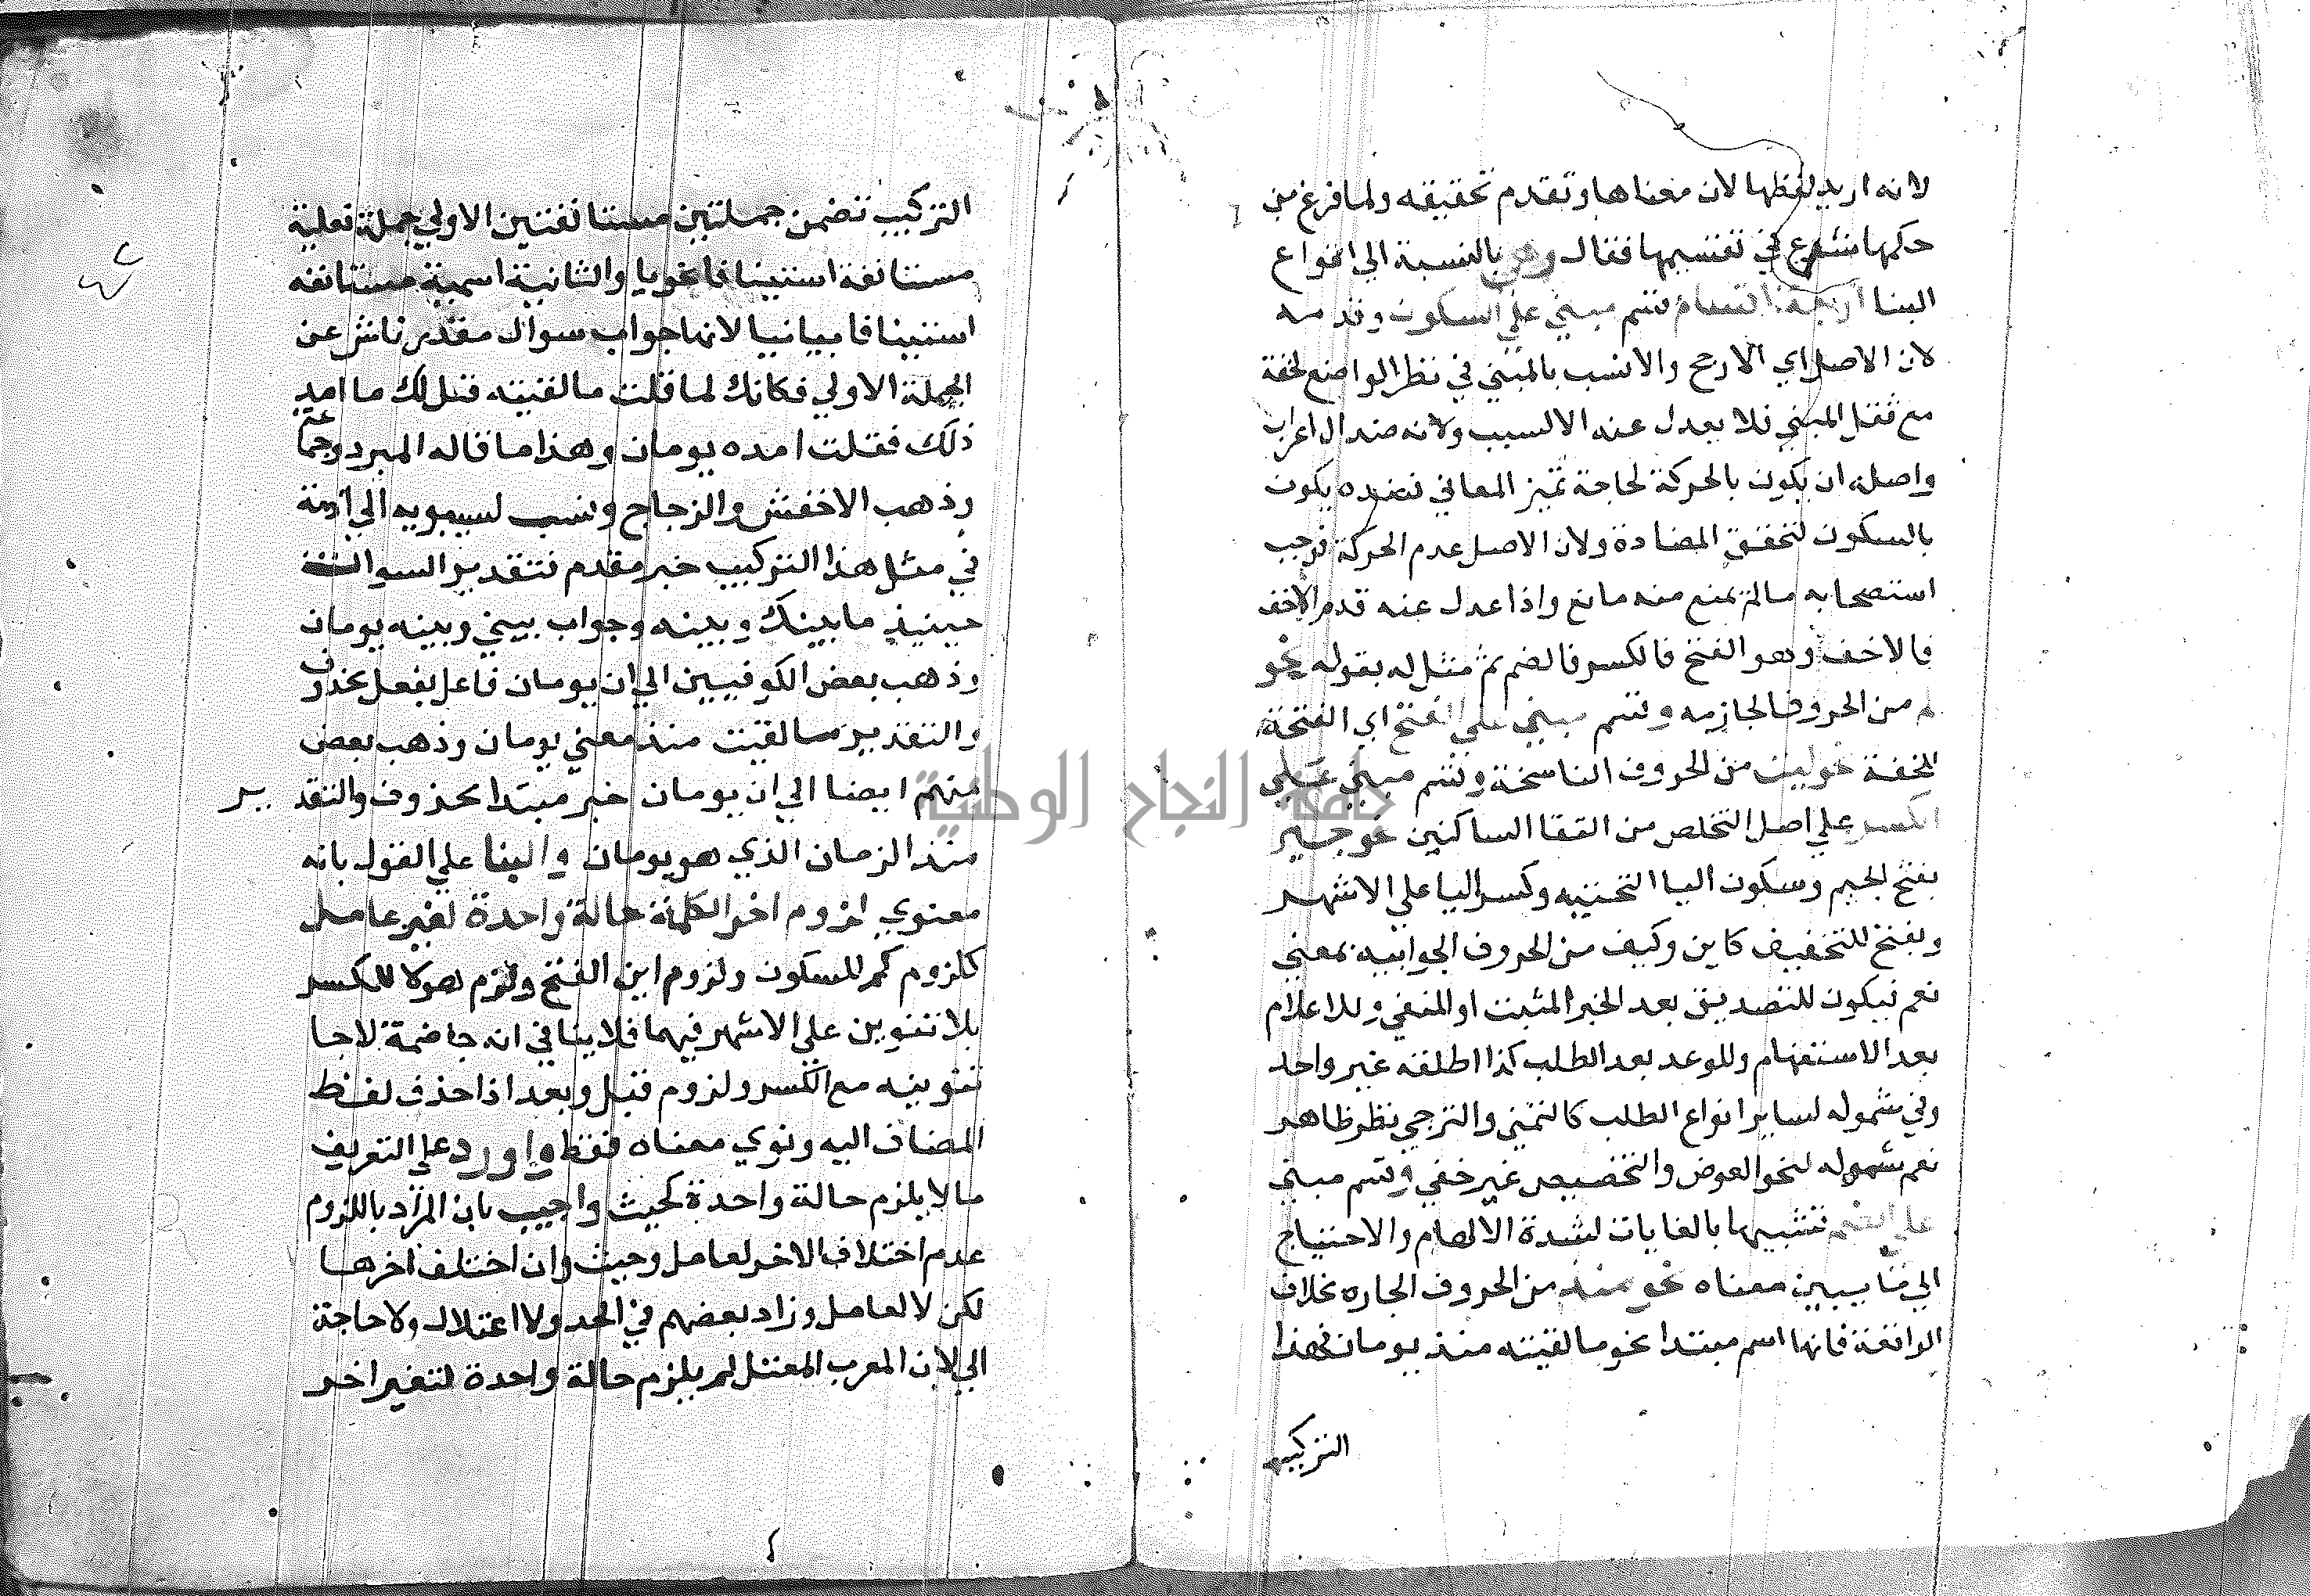 لانه اريد لفظها لان معناها وتقدم تحقيقه ولما فرغ من
حكمها شرع في تقسيمها فقال وهي بالنسبة الي انواع
البنا اربعة اقسام قسم مبني علي السكون وقدمه
لان الاصل اي الارجح والانسب بالمبني في نظر الواضع لخفة
مع ثقل المبني فلا يعدل عنه الا لسبب ولانه ضد الاعراب
واصله ان يكون بالحركة لحاجة تميز المعاني فضده يكون
بالسكون لتحقق المضادة ولان الاصل عدم الحركة فوجب
استصحابه مالم يمنع منه مانع واذا عدل عنه قدم الاخف
فالاخف وهو الفتح فالكسر فالضم ثم مثل له بقوله نحو
لم من الحروف الجازمه وقسم مبني علي الفتح اي الفتحة
لخفة نحو ليت من الحروف الناسخة وقسم مبني علي
الكسر علي اصل التخلص من التقا الساكنين نحو جير
بفتح الجيم وسكون اليا التحتيه وكسر اليا علي الاشهر
وبفتح للتخفيف كاين وكيف من الحروف الجوابيه بمعني
نعم فيكون للتصديق بعد الخبر المثبت او المنفي وللاعلام
بعد الاستفهام وللوعد بعد الطلب كذا اطلقه غير واحد
وفي شموله لساير انواع الطلب كالتمني والترجي نظر ظاهر
نعم شموله لنحو العرض والتخصيص غير خفي وقسم مبني
علي الضم تشبيها بالغايات لشدة الابهام والاحتياج
الي ما يبين معناه نحو منذ من الحروف الجاره بخلاف
الرافعة فانها اسم مبتدا نحو ما لقيته منذ يومان فهذا
التركيب
جامعة النجاح الوطنية
التركيب تضمن جملتين مستانفتين الاولي جملة فعلية
مستانفة استينافا نحويا والثانية اسمية مستانفه
استينافا بيانيا لانها جواب سوال مقدر ناش عن
الجملة الاولي فكانك لما قلت ما لقيته قيل لك ما امد
ذلك فقلت امده يومان وهذا ما قاله المبرد وجماعة
وذهب الاخفش والزجاج ونسب لسيبويه الي انه
في مثل هذا التركيب خبر مقدم فتقدير السوال
حينيذ ما بينك وبينه وجواب بيني وبينه يومان
وذهب بعض الكوفيين الي ان يومان فاعل بفعل محذوف
والتقدير ما لقيت منذ معني يومان وذهب بعض
منهم ايضا الي ان يومان خبر مبتدا محذوف والتقدير
منذ الزمان الذي هو يومان والبنا علي القول بانه
معنوي لزوم اخر الكلمة حالة واحدة لغير عامل
كلزوم كم للسكون ولزوم اين الفتح ولزم هولا للكسر
بلا تنوين علي الاشهر فيهما فلا ينافي انه جا ضمة لاجا
تنوينه مع الكسر ولزوم قبل وبعد اذا حذف لفظ
المضاف اليه ونوي معناه فقط واورد علي التعريف
ما لا يلزم حالة واحدة كحيث واجيب بان المراد باللزوم
عدم اختلاف الاخر لعامل وحيث وان اختلف اخرها
لكن لا لعامل وزاد بعضهم في الحد ولا اعتلال ولا حاجة
الي لان المعرب المعتل لم يلزم حالة واحدة لتغير اخر